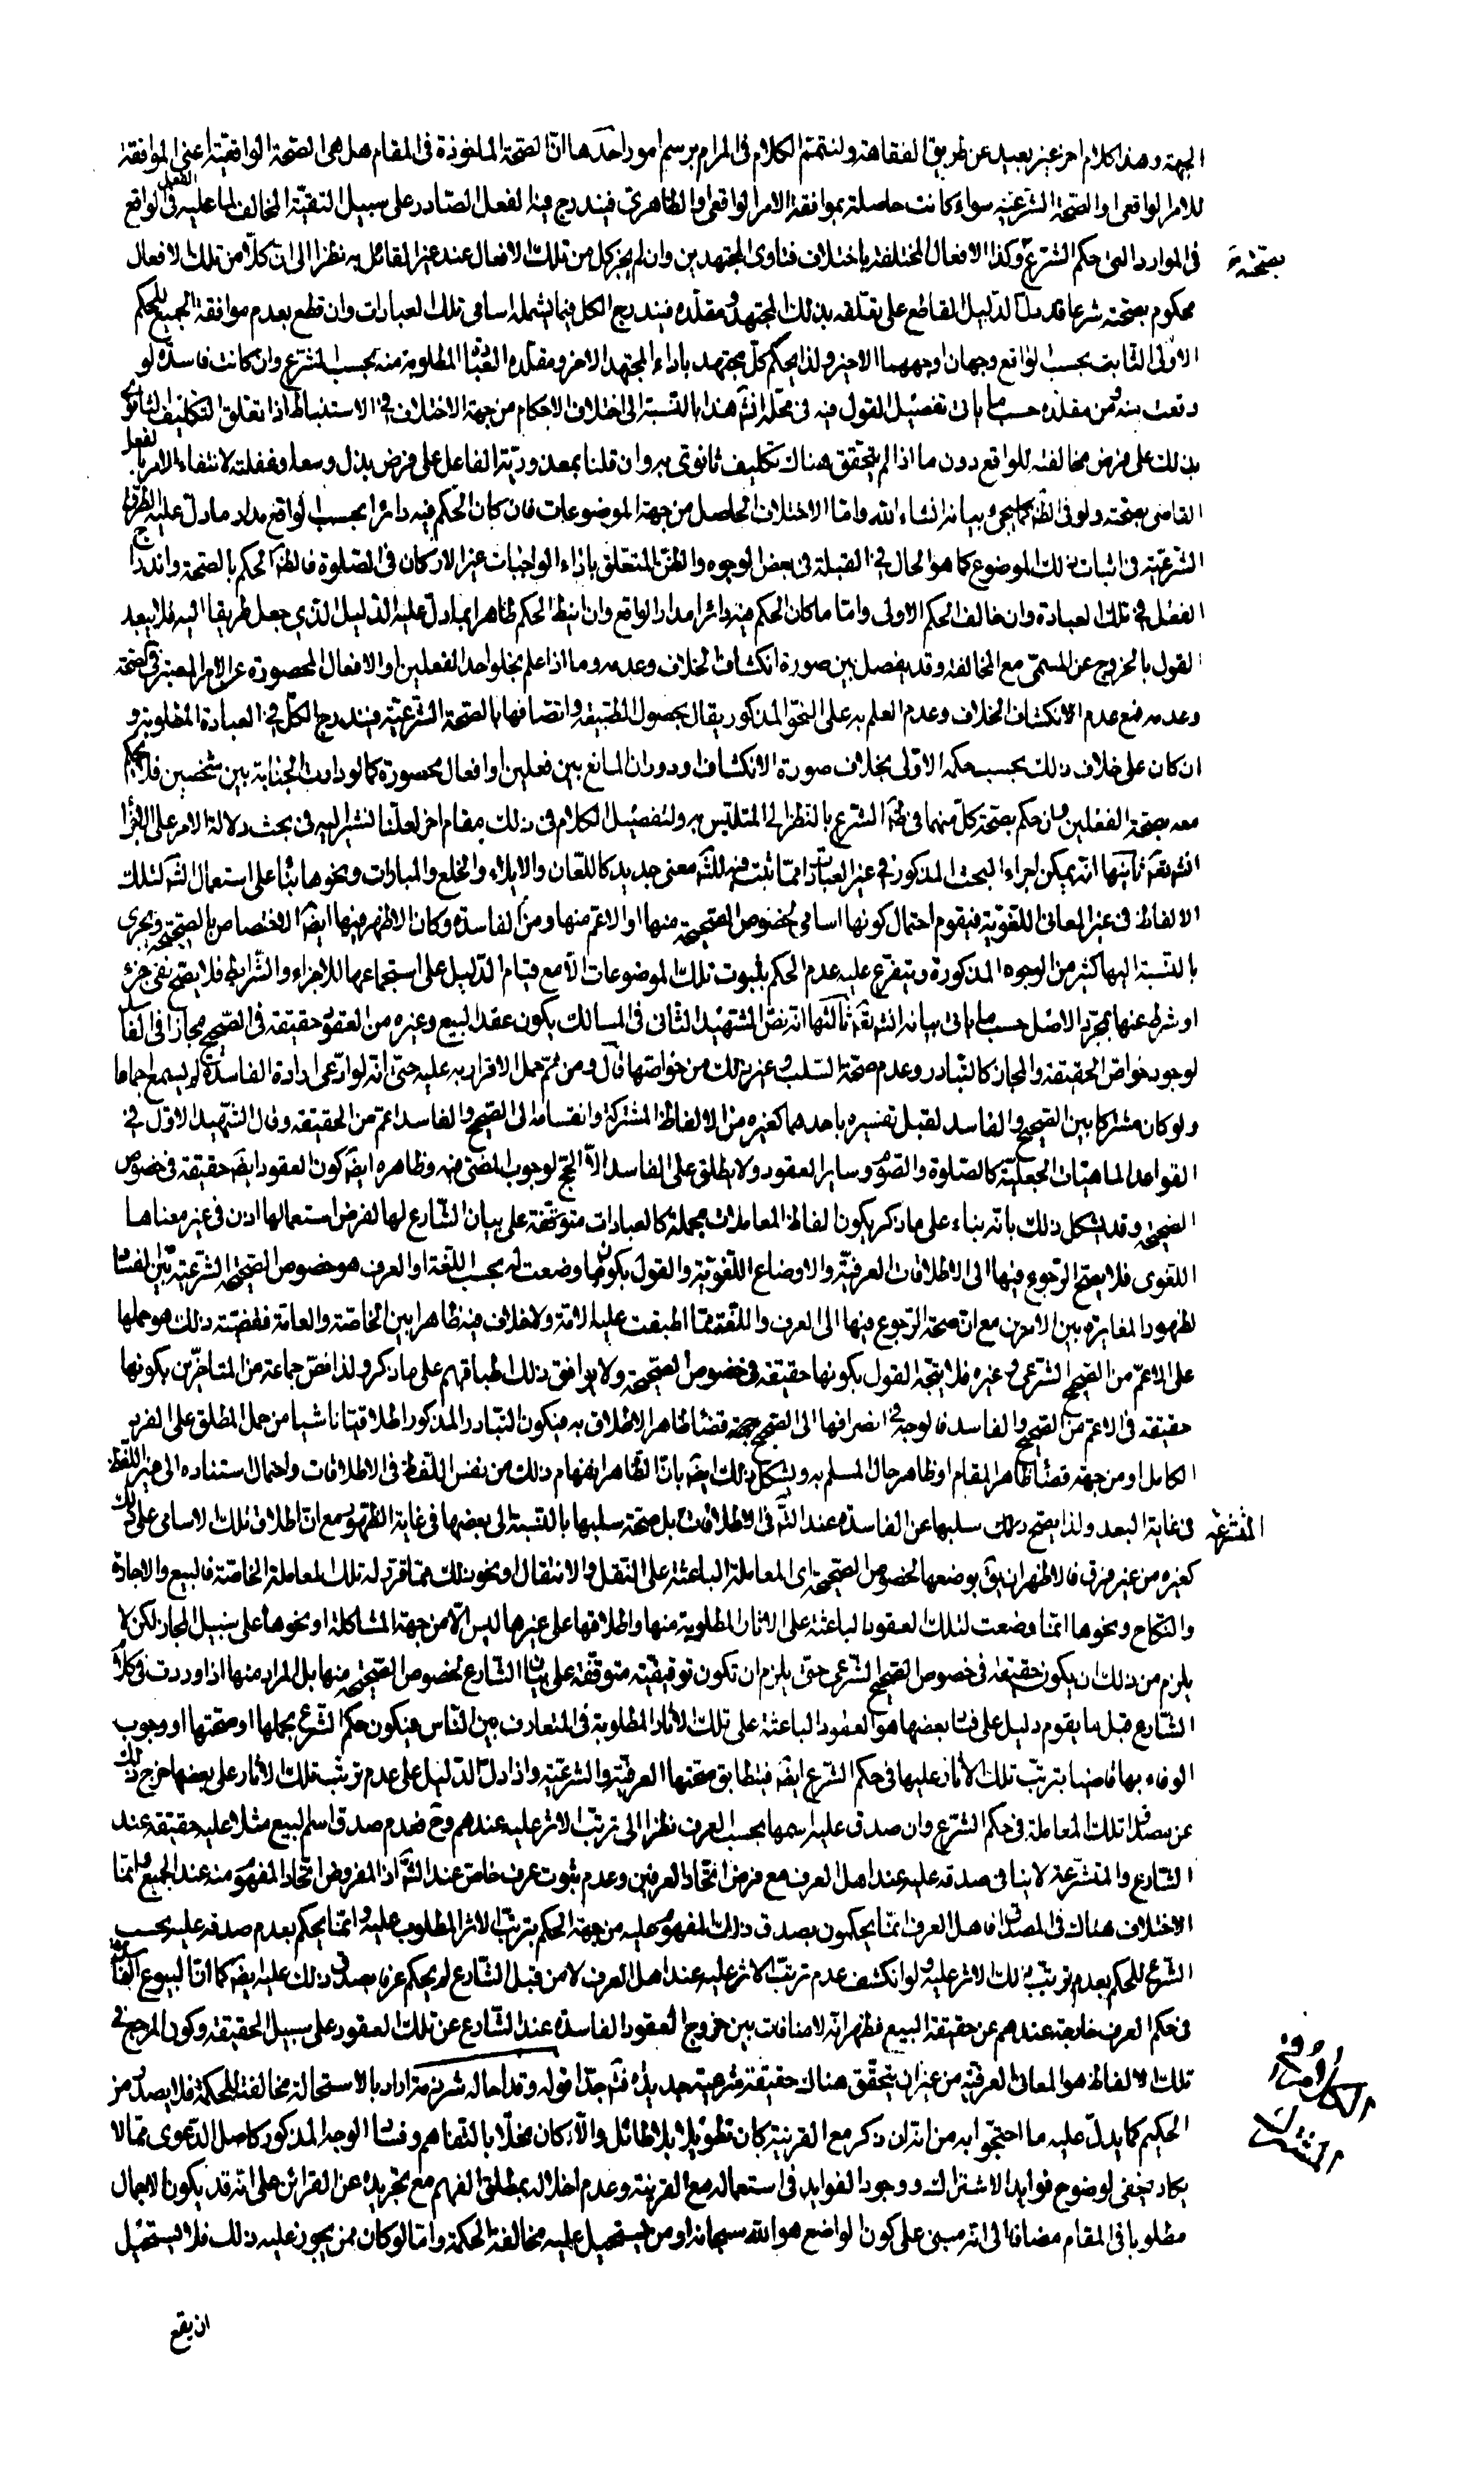 الجهة وهذا كلام اخر غير بعيد عن طريق الفقاهة ولنتمم الكلام فى المرام برسم امور احدها ان الصحة الماخوذة فى المقام هل هى الصحة الواقعية اعنى الموافقة
للامر الواقعى او الصحة الشرعية سواء كانت حاصلة بموافقة الامر الواقعى او الظاهرى فيندرج فيه الفعل الصادر على سبيل التقية المخالف لما عليه الفعل فى الواقع
فى الموارد التى حكم الشرع بصحته وكذا الافعال المختلفة باختلاف فتاوى المجتهدين وان لم يجز كل من تلك الافعال عند غير القائل به نظرا الى ان كلا من تلك الافعال
محكوم بصحته شرعا قد دل الدليل القاطع على تعلقه بذلك المجتهد ومقلده فيندرج الكل فيما يشمله اسامى تلك العبارات وان قطع بعدم موافقة الجميع للحكم
الاولى الثابت بحسب الواقع وجهان اوجههما الاخير ولذا يحكم كل مجتهد باداء المجتهد الاخر ومقلده العبادة المطلوبة منه بحسب الشرع وان كانت فاسدة لو
وقعت منه ومن مقلده حسب ما ياتى تفصيل القول فيه فى محله انشء هذا بالنسبة الى اختلاف الاحكام من جهة الاختلاف فى الاستنباط اذا تعلق التكليف الثانوى
بذلك على فرض مخالفته للواقع دون ما اذا لم يتحقق هناك تكليف ثانوى به وان قلنا بمعذورية الفاعل على فرض بذل وسعه او غفلته لانتفاء الامر بالفعل
القاضى بصحته ولو فى الظاهر كما يجئ بيانه انشاء الله واما الاختلاف الحاصل من جهة الموضوعات فان كان الحكم فيه دائرا بحسب الواقع مدار ما دل عليه الطرق
الشرعية فى اثبات ذلك الموضوع كما هو الحال فى القبلة فى بعض الوجوه والظن المتعلق باداء الواجبات غير الاركان فى الصلوة فالظاهر الحكم بالصحة واندراج
الفعل فى تلك العبادة وان خالف الحكم الاولى واما ما كان الحكم فيه دائرا مدار الواقع وان انيط الحكم ظاهرا بما دل عليه الدليل الذى جعل طريقا اليه فلا يبعد
القول بالخروج عن المسمى مع المخالفة وقد يفصل بين صورة انكشاف الخلاف وعدمه وما اذا علم بخلو احد الفعلين او الافعال المحصورة عن الامر المعتبر فى الصحة
وعدمه فمع عدم الانكشاف الخلاف وعدم العلم به على النحو المذكور يقال بحصول الطبيعة واتصافها بالصحة الشرعية فيندرج الكل فى العبادة المطلوبة و
ان كان على خلاف ذلك بحسب حكمه الاولى بخلاف صورة الانكشاف او دوران المانع بين فعلين او افعال محصورة كما لو دارت الجنابة بين شخصين فلا يحكم
معه بصحة الفعلين وان حكم بصحة كل منهما فى ظاهر الشرع بالنظر الى المتلبس به ولتفصيل الكلام فى ذلك مقام اخر لعلنا نشير اليه فى بحث دلالة الامر على الاجزاء
انشء تعالى ثانيها انه يمكن اجراء البحث المذكور فى غير العبادات مما ثبت فيه للشارع معنى جديد كاللعان والايلاء والخلع والمبارات ونحوها بناء على استعمال الشارع لتلك
الالفاظ فى غير المعانى اللغوية فيقوم احتمال كونها اسامى لخصوص الصحيحة منها او الاعم منها ومن الفاسدة وكان الاظهر فيها ايضا الاختصاص بالصحيحة ويجرى
بالنسبة اليها كثير من الوجوه المذكورة ويتفرع عليه عدم الحكم بثبوت تلك الموضوعات الا مع قيام الدليل على استجماعها للاجزاء والشرايط فلا يصح نفى جزء
او شرط عنها بمجرد الاصل حسب ما ياتى بيانه انشء تعالى ثالثها انه نص الشهيد الثانى فى المسالك بكون عقد البيع وغيره من العقود حقيقة فى الصحيح مجازا فى الفاسد
لوجود خواص الحقيقة والمجاز كالتبادر وعدم صحة السلب وغير ذلك من خواصها قال ومن ثم حمل الاقرار به عليه حتى انه لو ادعى ارادة الفاسد لم يسمع اجماعا
ولو كان مشتركا بين الصحيح والفاسد لقبل تفسيره باحدهما كغيره من الالفاظ المشتركة وانقسامه الى الصحيح والفاسد اعم من الحقيقة وقال الشهيد الاول فى
القواعد الماهيات الجعلية كالصلوة والصوم وساير العقود ولا يطلق على الفاسد الا الحج لوجوب المضى فيه وظاهره ايضا كون العقود ايضا حقيقة فى خصوص
الصحيحة وقد يشكل ذلك بانه بناء على ما ذكر يكون الفاظ المعاملات مجملة كالعبادات متوقفة على بيان الشارع لها لفرض استعمالها اذن فى غير معناها
اللغوى فلا يصح الرجوع فيها الى الاطلاقات العرفية والاوضاع اللغوية والقول بكون ما وضعت له بحسب اللغة او العرف هو خصوص الصحيحة الشرعية بين الفساد
لظهور المغايرة بين الامرين مع ان صحة الرجوع فيها الى العرف واللغة مما اطبقت عليه الامة ولا خلاف فيه ظاهرا بين الخاصة والعامة فقضية ذلك هو حملها
على الاعم من الصحيح الشرعى وغيره فلا يتجه القول بكونها حقيقة فى خصوص الصحيحة ولا يوافق ذلك اطباقهم على ما ذكر ولذا نص جماعة من المتاخرين بكونها
حقيقة فى الاعم من الصحيح والفاسد فالوجه فى انصرافها الى الصحيح جهة قضاء ظاهر الاطلاق به فيكون التبادر المذكور اطلاقيا ناشيا من حمل المطلق على الفرد
الكامل او من جهة قضاء ظاهر المقام او ظاهر حال المسلم به ويشكل ذلك ايضا بان الظاهر انفهام ذلك من نفس اللفظ فى الاطلاقات واحتمال استناده الى غير اللفظ
فى غاية البعد ولذا يصح سلبها عن الفاسدة عند المتشرعة فى الاطلاقات بل صحة سلبها بالنسبة الى بعضها فى غاية الظهور مع ان اطلاق تلك الاسامى على ذلك
كغيره من غير فرق فالاظهر ان يق بوضعها لخصوص الصحيحة اى المعاملة الباعثة على النقل والانتقال ونحو ذلك مما قرر له تلك المعاملة الخاصة فالبيع والاجارة
والنكاح ونحوها انما وضعت لتلك العقود الباعثة على الاثار المطلوبة منها واطلاقها على غيرها ليس الا من جهة المشاكلة او نحوها على سبيل المجاز لكن لا
يلزم من ذلك ان يكون حقيقة فى خصوص الصحيح الشرعى حتى يلزم ان تكون توقيفية متوقفة على بيان الشارع لخصوص الصحيحة منها بل المراد منها اذا وردت فى كلام
الشارع قبل ما يقوم دليل على فساد بعضها هو العقود الباعثة على تلك الاثار المطلوبة فى المتعارف بين الناس فيكون حكم الشرع بحلها او صحتها او وجوب
الوفاء بها قاضيا بترتب تلك الاثار عليها فى حكم الشرع ايضا فيتطابق صحتها العرفية والشرعية واذا دل الدليل على عدم ترتب تلك الاثار على بعضها خرج ذلك
عن مصداق تلك المعاملة فى حكم الشرع وان صدق عليه اسمها بحسب العرف نظرا الى ترتب الاثر عليه عندهم وح فعدم صدق اسم البيع مثلا عليه حقيقة عند
الشارع والمتشرعة لا ينافى صدقه عليه عند اهل العرف مع فرض اتحاد العرفين وعدم ثبوت عرف خاص عند الشارع اذ المفروض اتحاد المفهوم منه عند الجميع وانما
الاختلاف هناك فى المصداق فاهل العرف انما يحكمون بصدق ذلك المفهوم عليه من جهة الحكم بترتب الاثر المطلوب عليه وانما يحكم بعدم صدقه عليه بحسب
الشرع للحكم بعدم ترتب ذلك الاثر عليه ولو انكشف عدم ترتب الاثر عليه عند اهل العرف لا من قبل الشارع لم يحكم عرفا بصدق ذلك عليه ايضا كما ان البيوع الفاسدة
فى حكم العرف خارجة عندهم عن حقيقة البيع فظهر انه لا منافات بين خروج العقود الفاسدة عند الشارع عن تلك العقود على سبيل الحقيقة وكون المرجع فى
تلك الالفاظ هو المعانى العرفية من غير ان يتحقق هناك حقيقة شرعية جديدة فتامل جدا قوله وقد احاله شرذمة اراد بالاستحالة مخالفة الحكمة فلا يصدر من
الحكيم كما يدل عليه ما احتجوا به من انه ان ذكر مع القرينة كان تطويلا بلا طائل والا كان مخلا بالتفاهم وفساد الوجه المذكور كاصل الدعوى مما لا
يكاد يخفى لوضوح فوايد الاشتراك ووجود الفوايد فى استعماله مع القرينة وعدم اخلاله بمطلق الفهم مع تجريده عن القرائن على انه قد يكون الاجمال
مطلوبا فى المقام مضافا الى انه مبنى على كون الواضع هو الله سبحانه او من يستحيل عليه مخالفة الحكمة واما لو كان ممن يجوز عليه ذلك فلا يستحيل
ان يقع
بصحته
المتشرعة
الكلام فى
الاشتراك